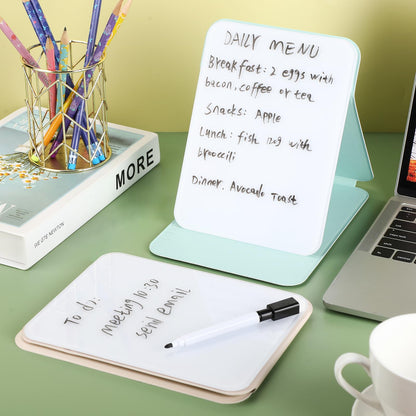 DAILY MENU
Breakfast: 2 eggs with
bacon, coffee or tea
Snacks: Apple
Lunch: fish 120g with
broccili
Dinner. Avocado Toast
MORE
To do:
meeting 10:30
send email